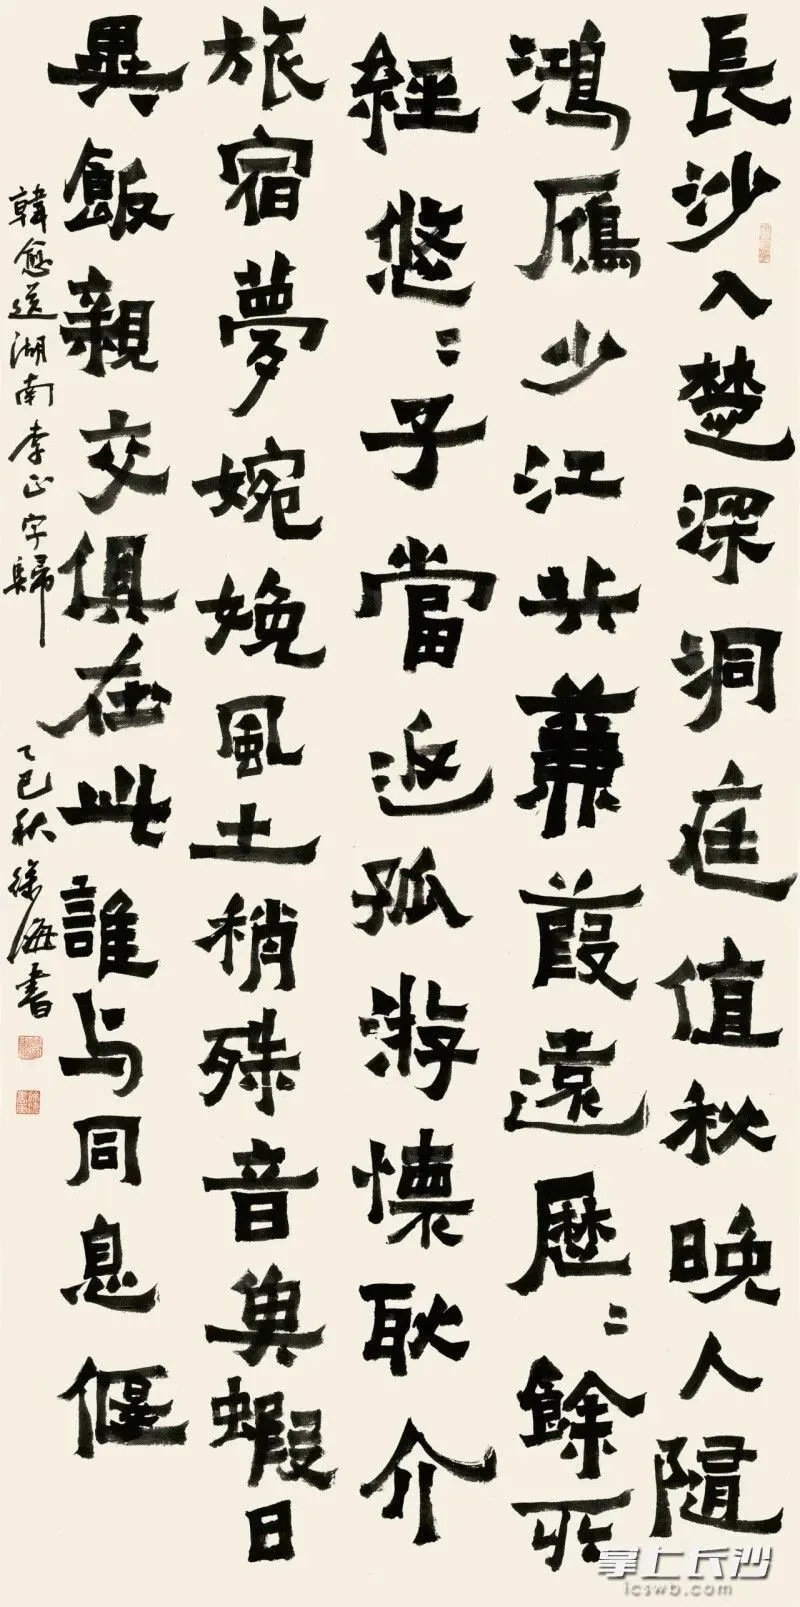 長沙入楚深洞庭值秋晚人隨
鴻鴈少江共蒹葭遠歷〻餘所
經悠〻子當返孤游懷耿介
旅宿夢婉娩風土稍殊音魚蝦日
異飯親交俱在此誰与同息偃
韓愈送湖南李正字歸 乙巳秋 徐海書
掌上长沙
icswb.com